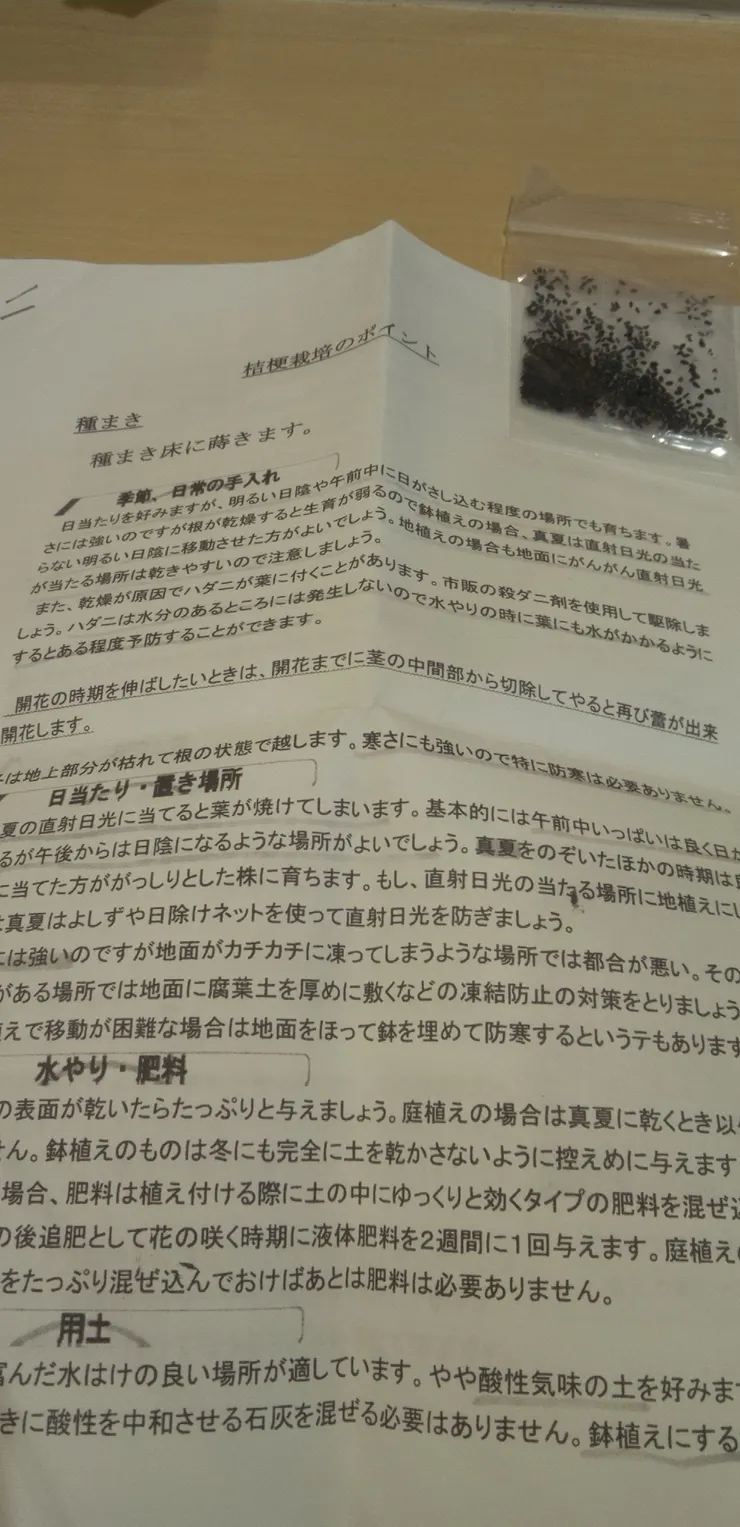 桔梗栽培のポイント
種まき
種まき床に蒔きます。
季節、日常の手入れ
日当たりを好みますが、明るい日陰や午前中に日がさし込む程度の場所でも育ちます。暑
さには強いのですが根が乾燥すると生育が弱るので鉢植えの場合、真夏は直射日光の当た
らない明るい日陰に移動させた方がよいでしょう。地植えの場合も地面にがんがん直射日光
が当たる場所は乾きやすいので注意しましょう。
また、乾燥が原因でハダニが葉に付くことがあります。市販の殺ダニ剤を使用して駆除しま
しょう。ハダニは水分のあるところには発生しないので水やりの時に葉にも水がかかるように
するとある程度予防することができます。
開花の時期を伸ばしたいときは、開花までに茎の中間部から切除してやると再び蕾が出来
開花します。
は地上部分が枯れて根の状態で越します。寒さにも強いので特に防寒は必要ありません。
日当たり・置き場所
夏の直射日光に当てると葉が焼けてしまいます。基本的には午前中いっぱいは良く日が
るが午後からは日陰になるような場所がよいでしょう。真夏をのぞいたほかの時期は
に当てた方ががっしりとした株に育ちます。もし、直射日光の当たる場所に地植えに
真夏はよしずや日除けネットを使って直射日光を防ぎましょう。
には強いのですが地面がカチカチに凍ってしまうような場所では都合が悪い。その
がある場所では地面に腐葉土を厚めに敷くなどの凍結防止の対策をとりましょう
えで移動が困難な場合は地面をほって鉢を埋めて防寒するというテもあります
水やり・肥料
の表面が乾いたらたっぷりと与えましょう。庭植えの場合は真夏に乾くとき以
せん。鉢植えのものは冬にも完全に土を乾かさないように控えめに与えます
場合、肥料は植え付ける際に土の中にゆっくりと効くタイプの肥料を混ぜ込
の後追肥として花の咲く時期に液体肥料を2週間に1回与えます。庭植えの
をたっぷり混ぜ込んでおけばあとは肥料は必要ありません。
用土
富んだ水はけの良い場所が適しています。やや酸性気味の土を好みま
きに酸性を中和させる石灰を混ぜる必要はありません。鉢植えにする